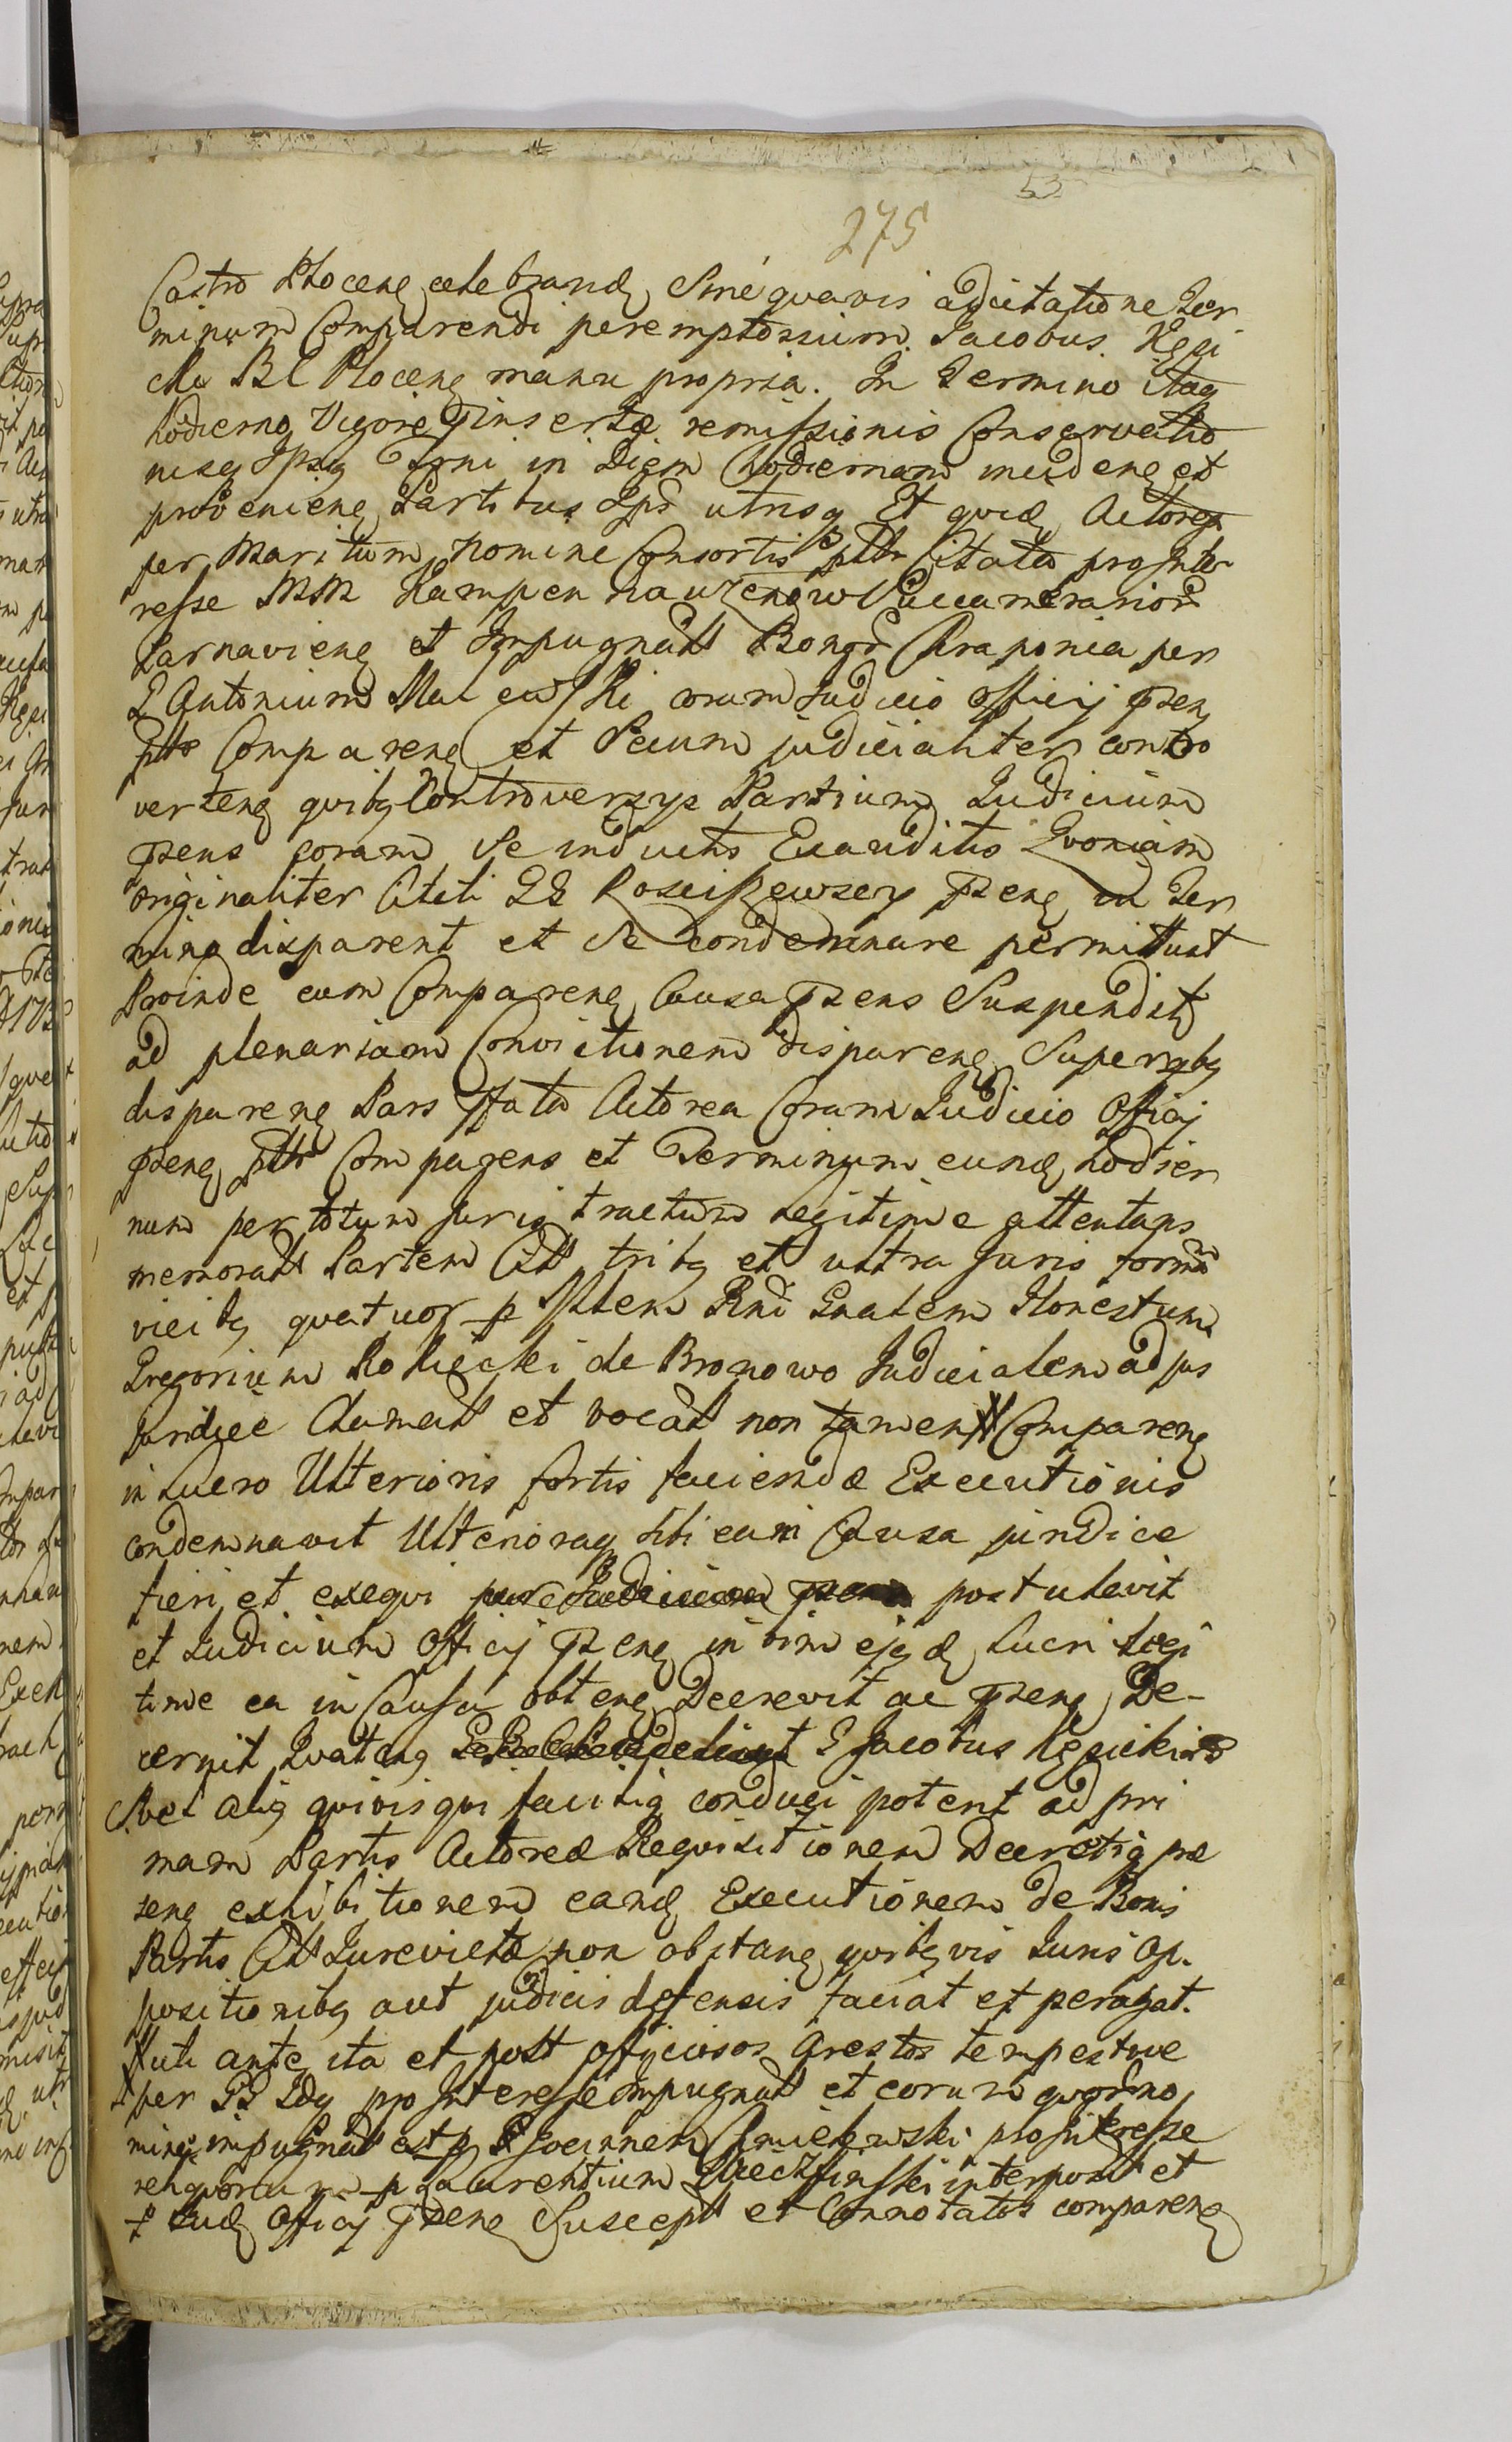 53
275
Castro Plocens celebrand Sine quavis adcitatione Ter
minum Comparendi peremptorium Jacobus Kęsi
cki BC Plocens manu propria. In Termino itaq
hodierno Vigore pinsertæ remissionis Conservatio
nisq Ipsiq Trni in Diem hodiernam inciden et
provenien Partibus Ips utrisq Et quid Actorea
per Maritum Nomine Consortis pttr Citata pro Inte
resse MM Kampenhauzenow Succamerariorum
Parnaviens et Impugnatt Bonor Chraponia per
G Antonium coram Judicio Officij psens
pttr Comparens et Secum judicialiter contro
vertens quibq Controversys Partium Judicium
psens coram se inductis Exauditis Quoniam
originaliter Citati GG Rosciszewscy psens in Ter
mino disparent et Se condemnare permittunt
Proinde cum Comparens Causa psens Suspendit
ad plenariam Convictionem disparens Superqbq
disparens Pars pfata Actorea Coram Judicio Officij
psens pttr Comparens et Terminum eund hodier
num per totum Juris tractum legitime attentans
memoratt Partem Citt tribq et ultra Juris formam
vicibq quatuor p Mlem Rni Gnalem Honestum
Gregorium Rokicki de Bronowo Judicialem ad jus
Juridice Clamatt et vocatt non tamen Comparens
in Lucro Ulterioris fortis faciendæ Executionis
condemnavit Ulterioraq sibi eam Causa juridice
fieri et exequi postulavit
et Judicium Officij psens in vim ejqd lucri legi
time ea in Causa obtens Decrevit ac psens De-
cernit Quatenq G Jacobus Kęsicki
vel aliq quivis qui facilig conduci potent ad pri
mam Partis Actoreæ Requisitionem Decretiq præ
sens exhibitionem eand Executionem de Bonis
Partis Citt Jurevictæ non obstanq quibqvis Juris op-
positionibq aut judicis defensis faciat et peragat.
Uti ante ita et post officiosos Arestos tempestive
per GG pro Interesse Impugnatt et eorum quor no
mine impugnatt est p G Joannem Chmielewski pro Interesse
reliquorum p Laurentium interposit et
p Jud Officij psens Suscept et Connotatos comparens